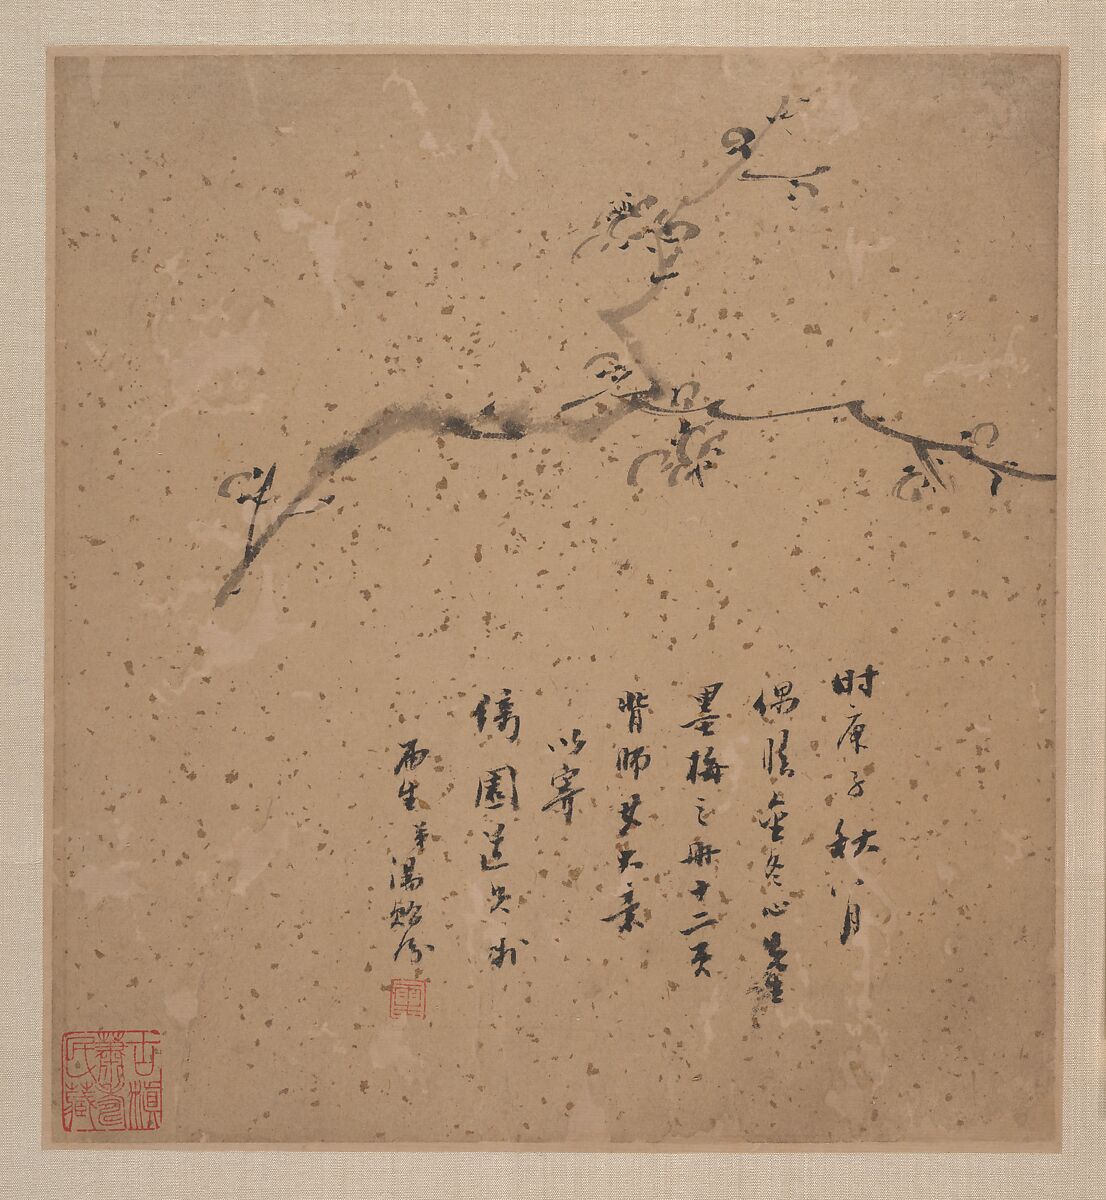 时庚子秋八月
偶臨金冬心先生
墨梅之冊十二頁
背師其大意
以寄
園道兄
雨生弟湯貽汾